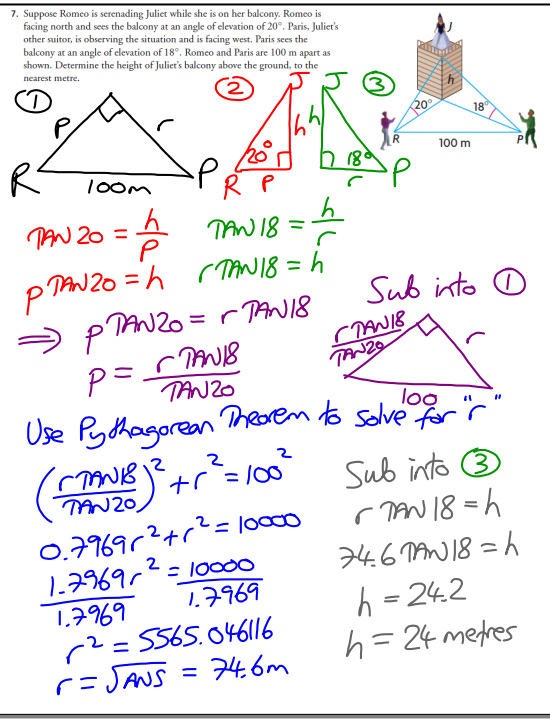 7. Suppose Romeo is serenading Juliet while she is on her balcony. Romeo is
facing north and sees the balcony at an angle of elevation of 20°. Paris, Juliet's
other suitor, is observing the situation and is facing west. Paris sees the
balcony at an angle of elevation of 18°. Romeo and Paris are 100 m apart as
shown. Determine the height of Juliet's balcony above the ground, to the
nearest metre.
J
h
20°
18°
R
P
100 m
①
P
r
R
P
100m
②
J
h
20°
R
P
③
J
h
18°
r
P
TAN 20 = h/P
P TAN 20 = h
TAN 18 = h/r
r TAN 18 = h
⇒ P TAN 20 = r TAN 18
P = r TAN 18 / TAN 20
Sub into ①
r TAN 18 / TAN 20
r
100
Use Pythagorean Theorem to solve for "r"
(r TAN 18 / TAN 20)² + r² = 100²
0.7969r² + r² = 10000
1.7969r² / 1.7969 = 10000 / 1.7969
r² = 5565.046116
r = √ANS = 74.6m
Sub into ③
r TAN 18 = h
74.6 TAN 18 = h
h = 24.2
h = 24 metres